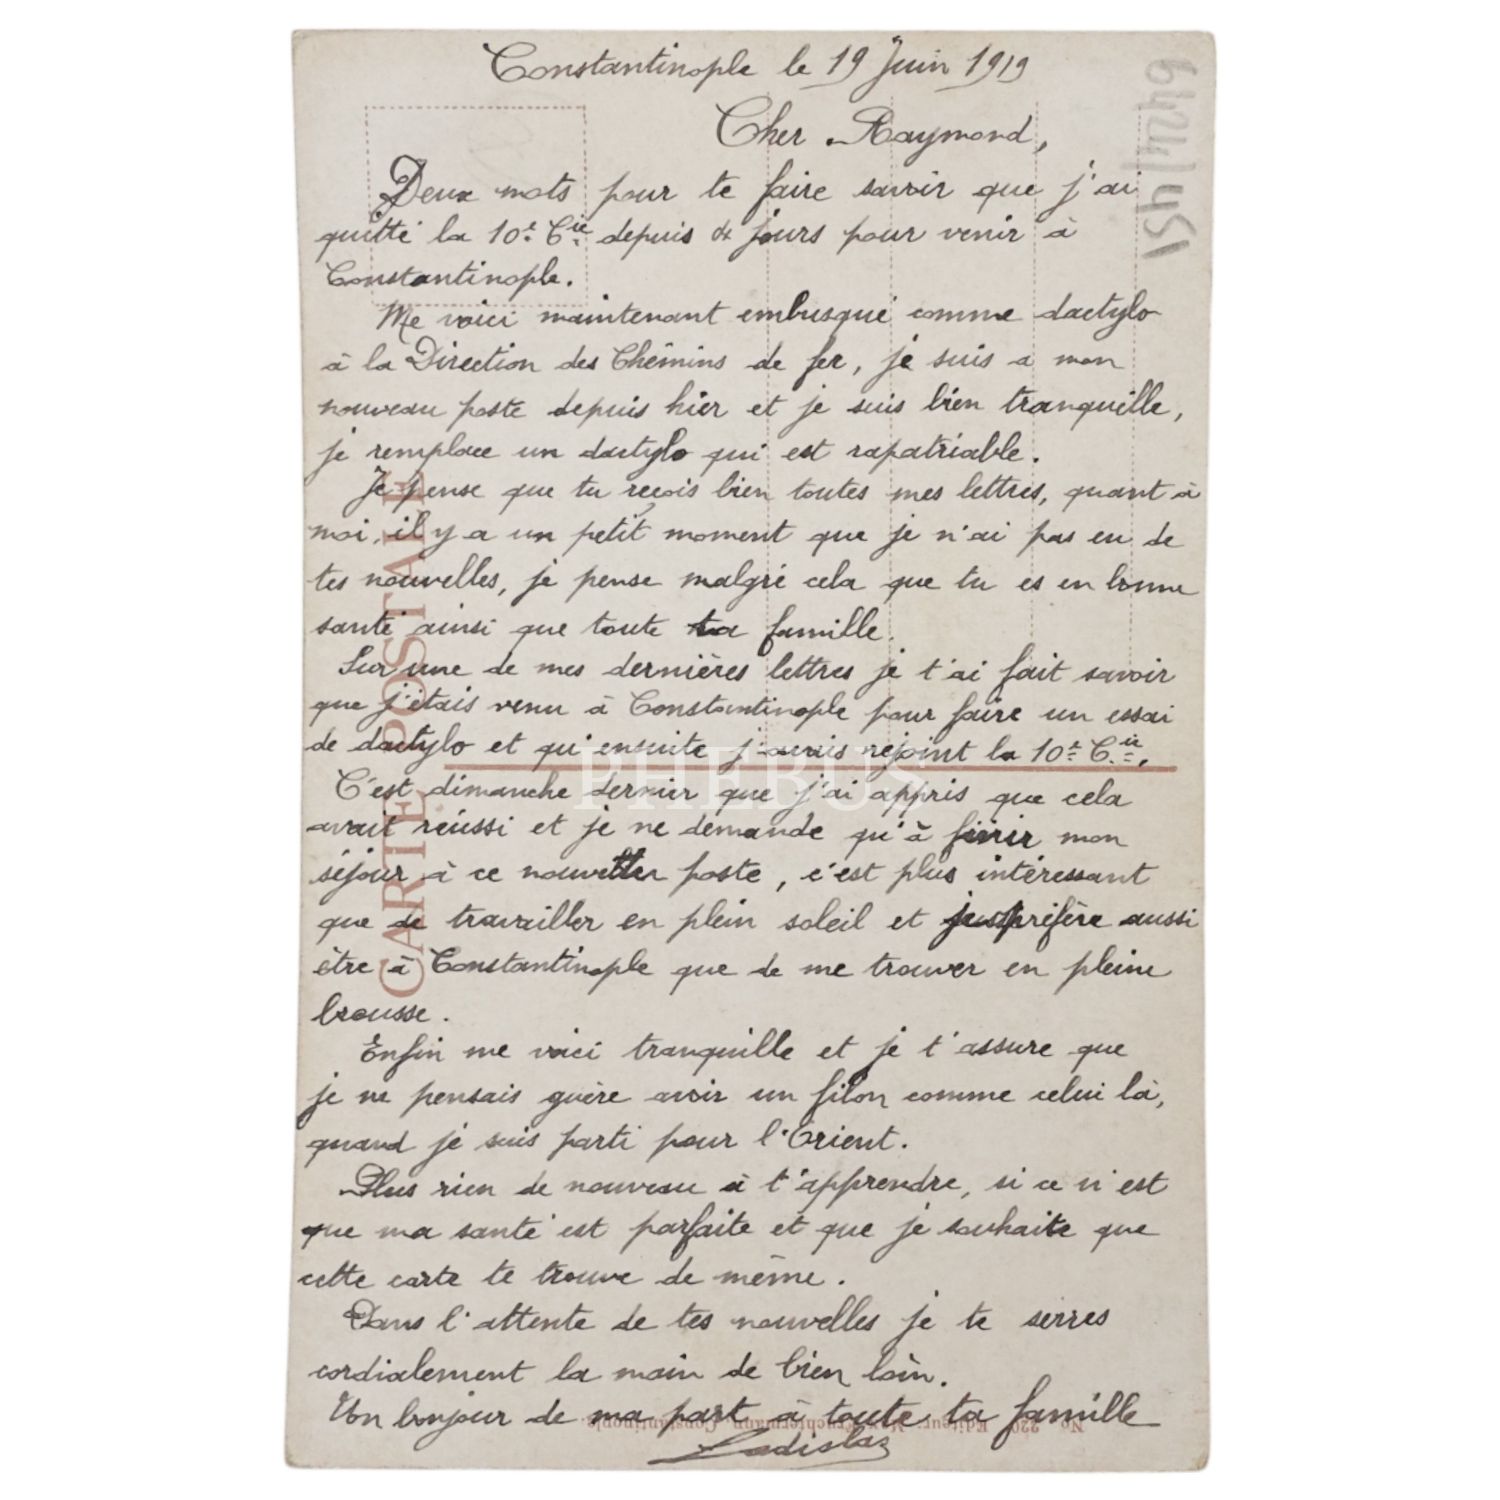 Constantinople le 19 Juin 1919
Cher Raymond,
Deux mots pour te faire savoir que j'ai
quitté la 10e Cie depuis 4 jours pour venir à
Constantinople.
Me voici maintenant embusqué comme dactylo
à la Direction des Chemins de fer, je suis a mon
nouveau poste depuis hier et je suis bien tranquille,
je remplace un dactylo qui est rapatriable.
Je pense que tu reçois bien toutes mes lettres, quant à
moi, il y a un petit moment que je n'ai pas eu de
tes nouvelles, je pense malgré cela que tu es en bonne
santé ainsi que toute ta famille.
Sur une de mes dernières lettres je t'ai fait savoir
que j'étais venu à Constantinople pour faire un essai
de dactylo et qu'ensuite j'avais rejoint la 10e Cie.
C'est dimanche dernier que j'ai appris que cela
avait réussi et je ne demande qu'à finir mon
séjour à ce nouveau poste, c'est plus intéressant
que de travailler en plein soleil et je préfère aussi
être à Constantinople que de me trouver en pleine
brousse.
Enfin me voici tranquille et je t'assure que
je ne pensais guère avoir un filon comme celui là,
quand je suis parti pour l'Orient.
Plus rien de nouveau à t'apprendre, si ce n'est
que ma santé est parfaite et que je souhaite que
cette carte te trouve de même.
Dans l'attente de tes nouvelles je te serres
cordialement la main de bien loin.
Un bonjour de ma part à toute ta famille
Ladislas
CARTE POSTALE
Editeur: Constantinople
PHEBUS